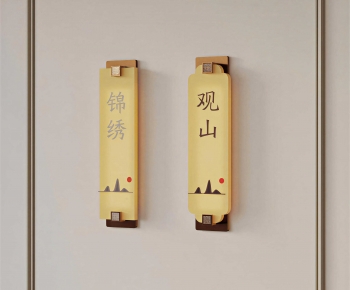 锦绣
观山